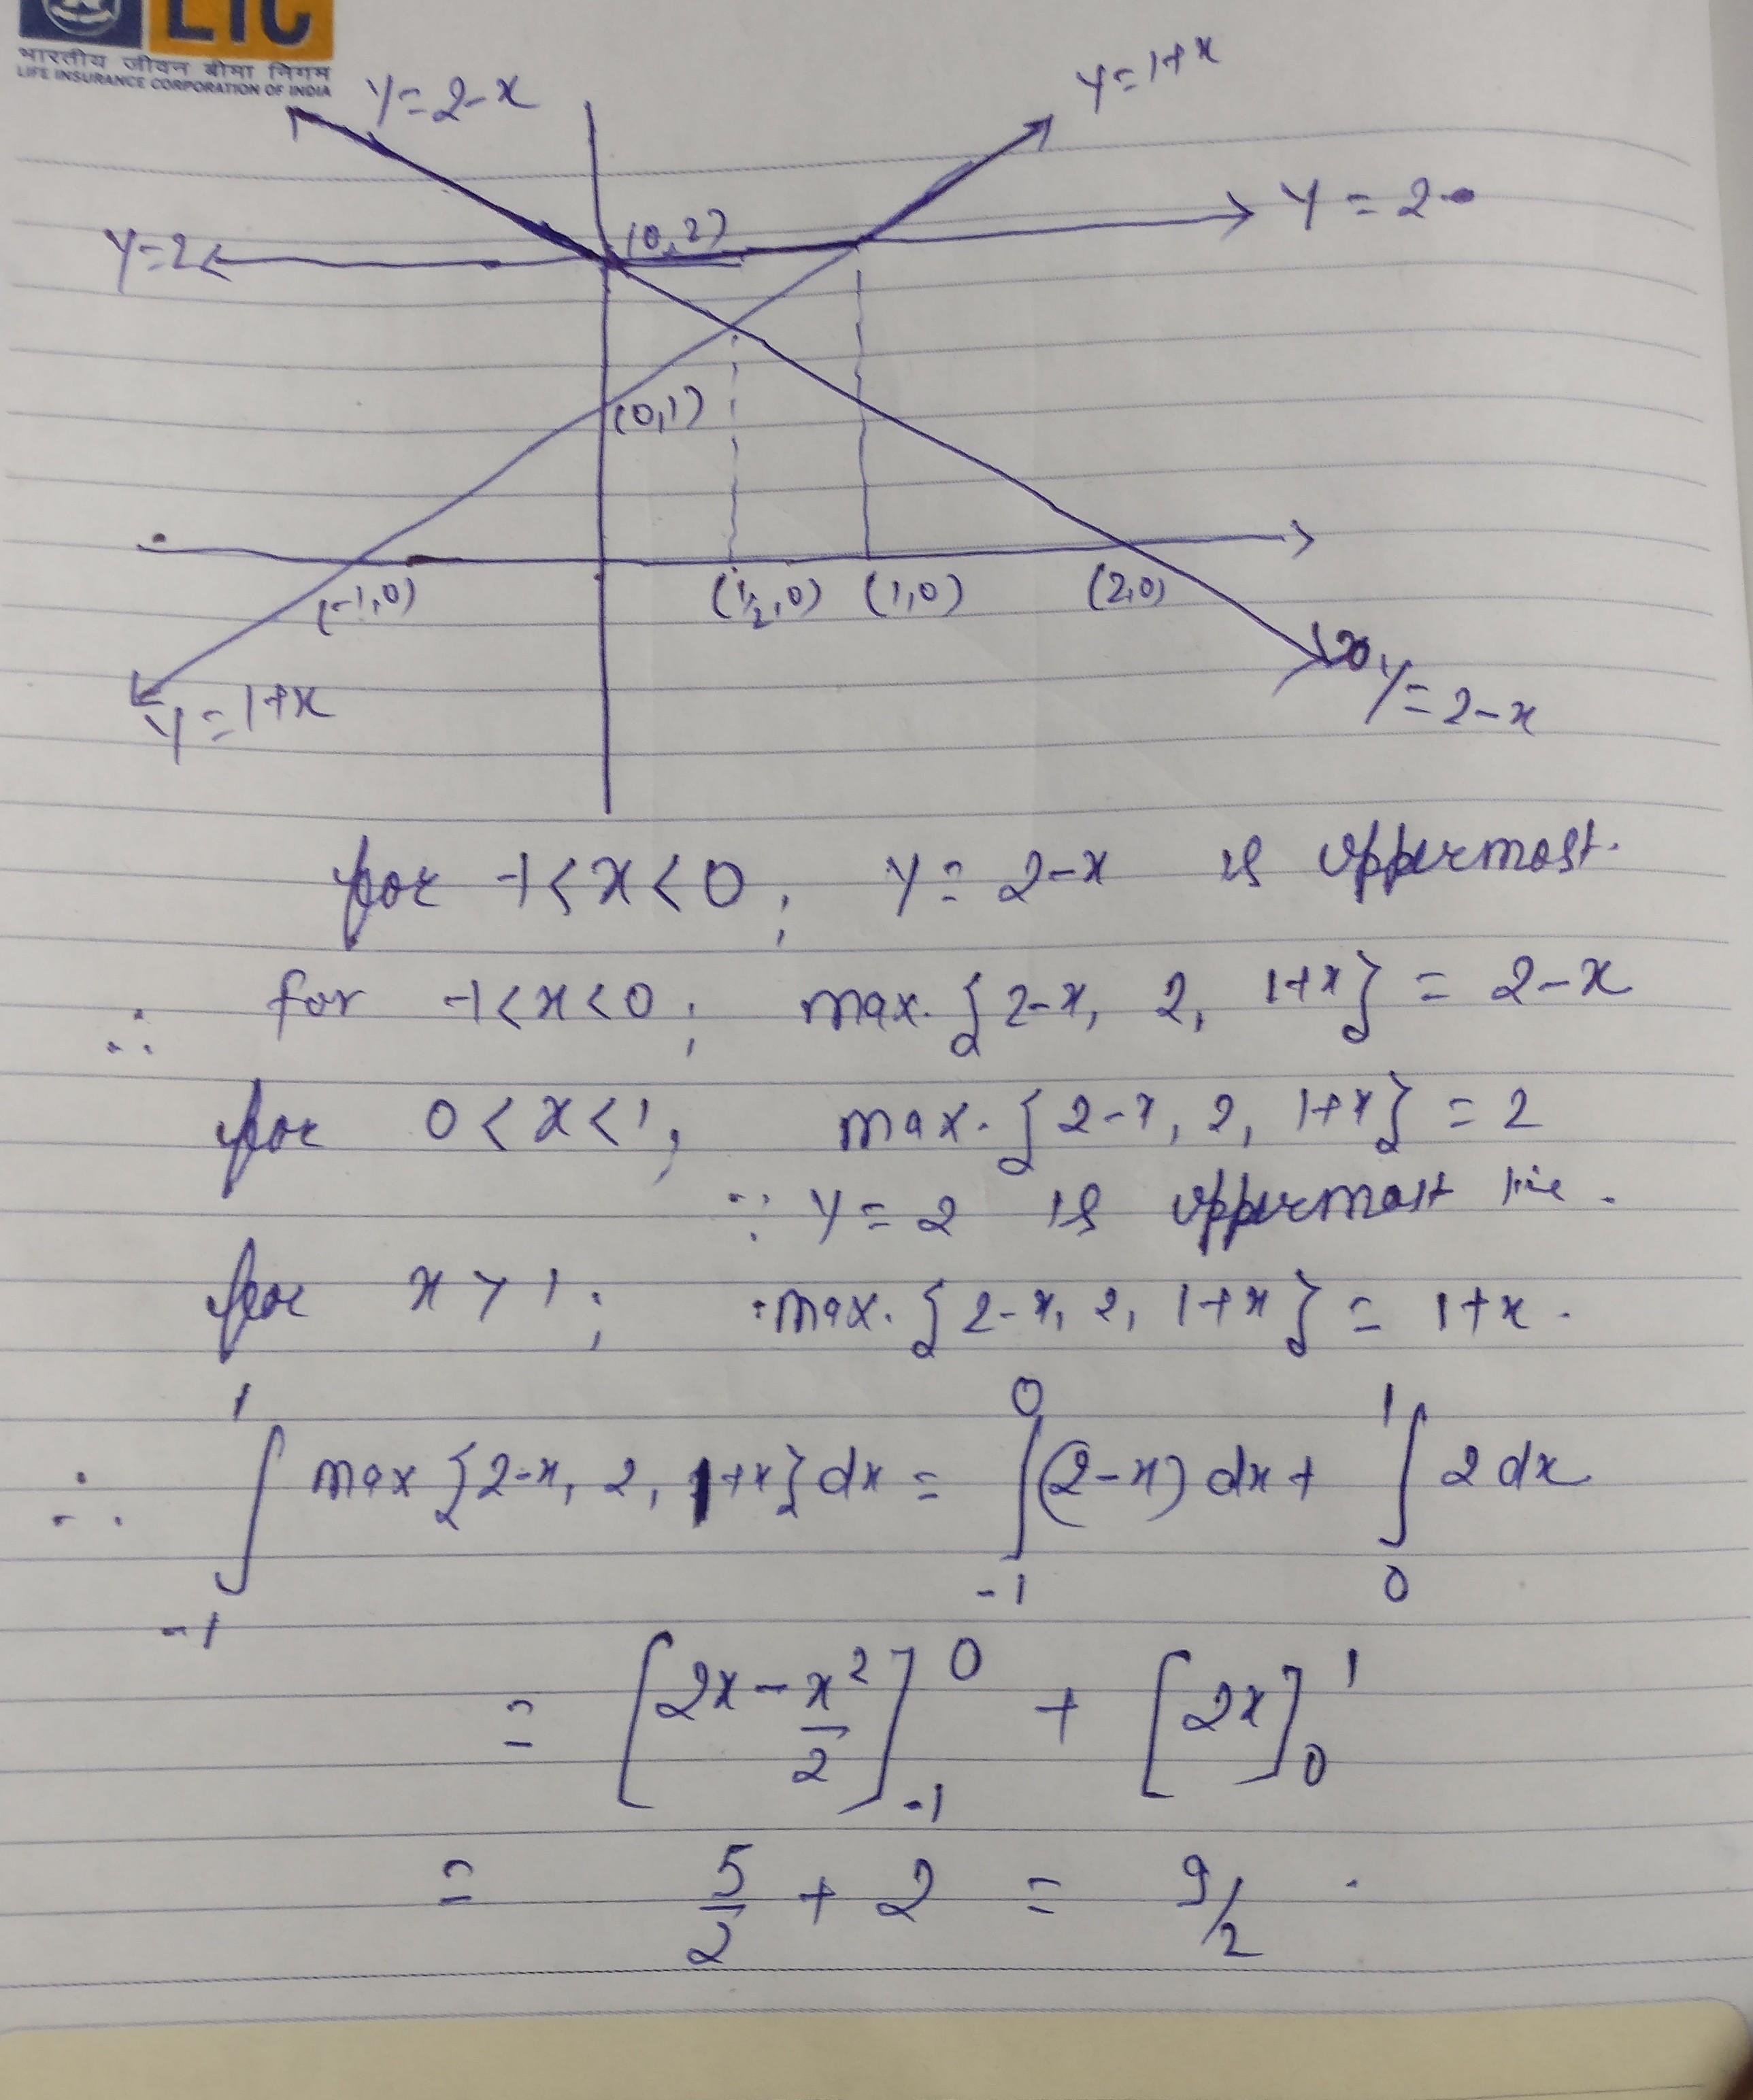 LIC
भारतीय जीवन बीमा निगम
LIFE INSURANCE CORPORATION OF INDIA
y = 2-x
y = 1+x
y = 2
y = 2
(0,2)
(0,1)
(-1,0)
(1/2,0)
(1,0)
(2,0)
y = 1+x
y = 2-x
for -1<x<0; y = 2-x is uppermost.
∴ for -1<x<0; max. {2-x, 2, 1+x} = 2-x
for 0<x<1, max. {2-x, 2, 1+x} = 2
∵ y = 2 is uppermost line.
for x>1; max. {2-x, 2, 1+x} = 1+x.
∴ ∫_{-1}^{1} max {2-x, 2, 1+x} dx = ∫_{-1}^{0} (2-x) dx + ∫_{0}^{1} 2 dx
= [2x - x²/2]_{-1}^{0} + [2x]_{0}^{1}
= 5/2 + 2 = 9/2.